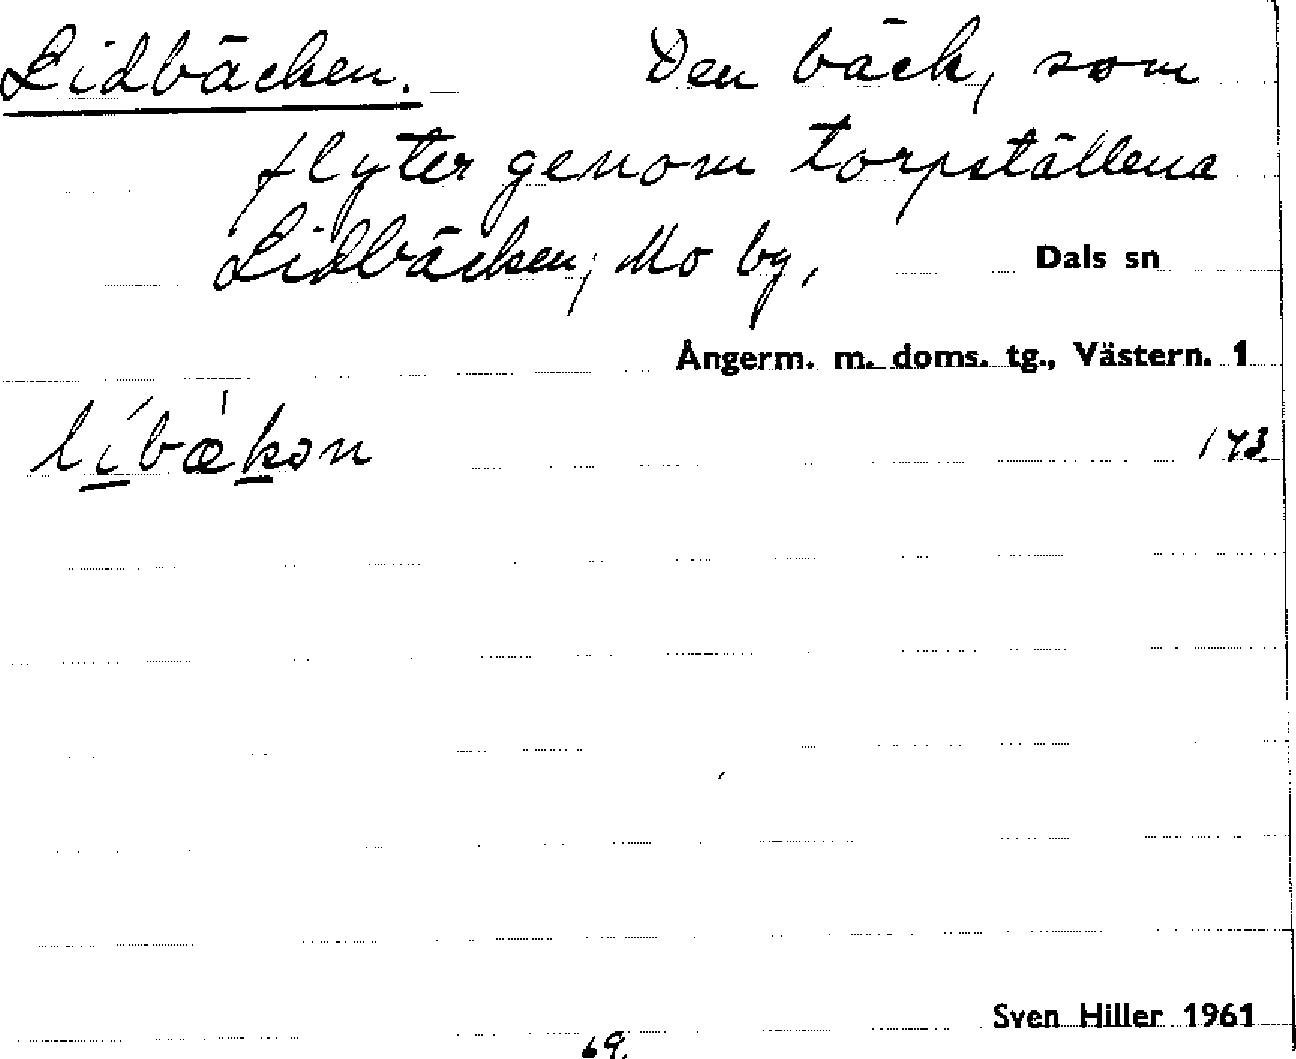 Lidbäcken. Den bäck, som
flyter genom torpställena
Lidbäcken, Mo by, Dals sn
Ångerm. m. doms. tg., Västern. 1
líbæ̀kən 173.
Sven Hiller 1961
69.